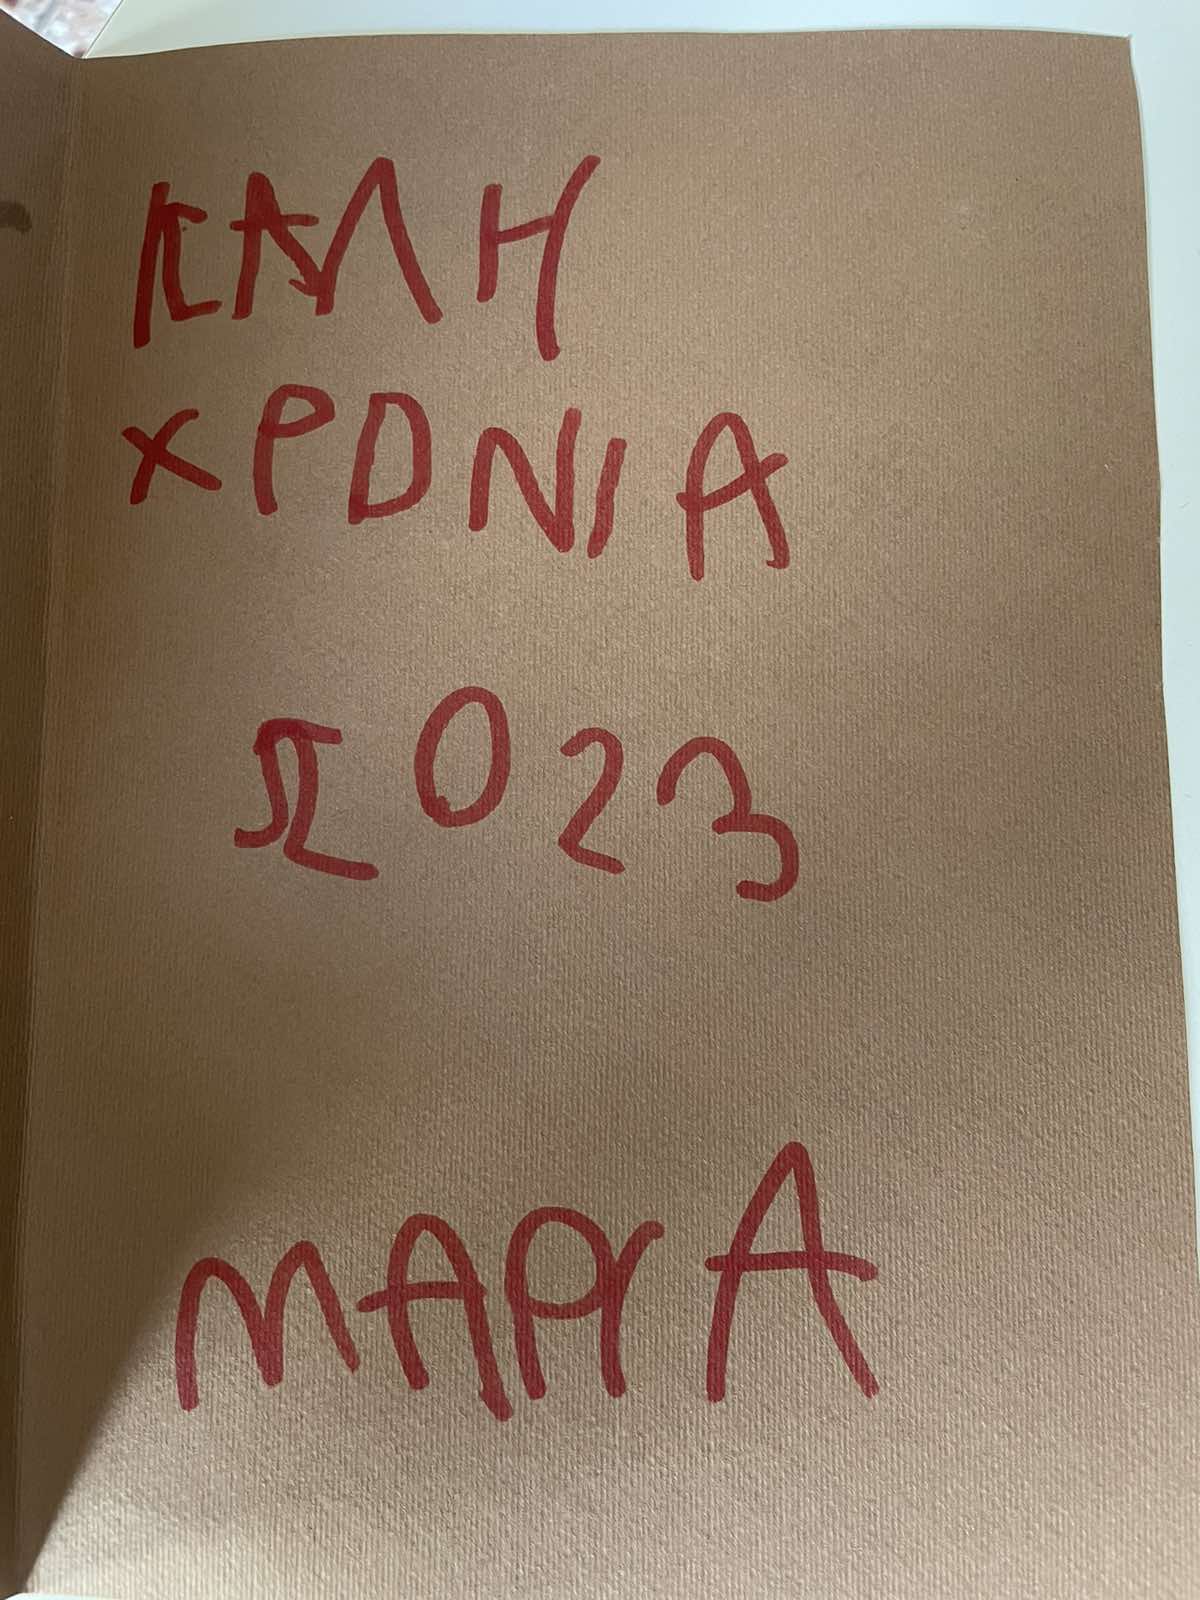 ΚΑΛΗ
ΧΡΟΝΙΑ
2023
ΜΑΡΙΑ